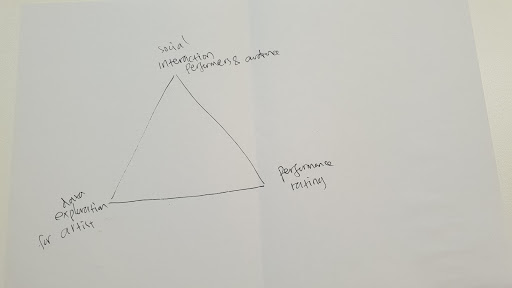 social
interaction
performers & audience
performance
rating
data
exploration
for artist